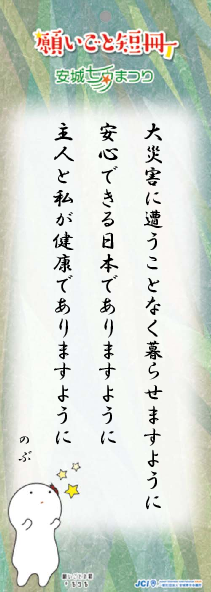 願いごと短冊
安城七夕まつり
大災害に遭うことなく暮らせますように
安心できる日本でありますように
主人と私が健康でありますように
のぶ
JCI